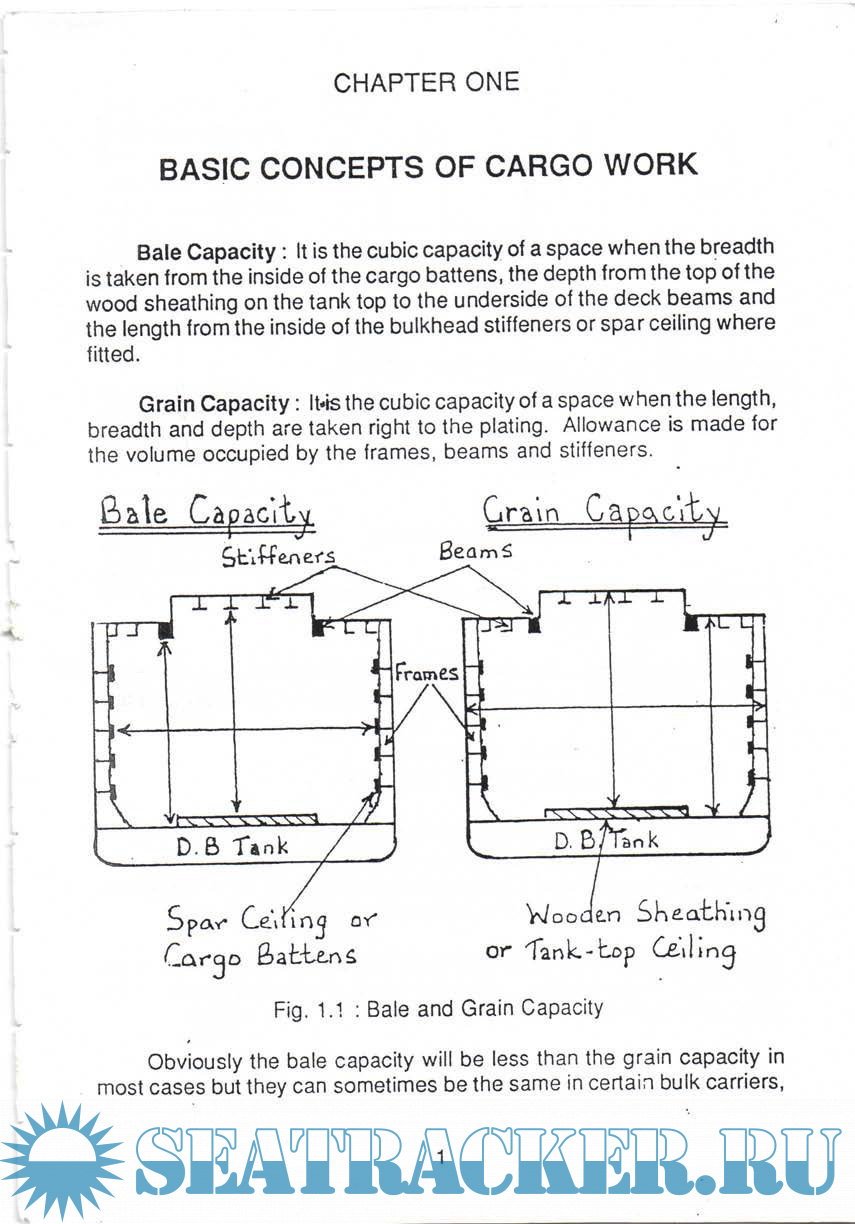 CHAPTER ONE
BASIC CONCEPTS OF CARGO WORK
Bale Capacity : It is the cubic capacity of a space when the breadth
is taken from the inside of the cargo battens, the depth from the top of the
wood sheathing on the tank top to the underside of the deck beams and
the length from the inside of the bulkhead stiffeners or spar ceiling where
fitted.
Grain Capacity : It is the cubic capacity of a space when the length,
breadth and depth are taken right to the plating. Allowance is made for
the volume occupied by the frames, beams and stiffeners.
Bale Capacity
Grain Capacity
Stiffeners
Beams
Frames
D.B Tank
D.B. Tank
Spar Ceiling or
Cargo Battens
Wooden Sheathing
or Tank-top Ceiling
Fig. 1.1 : Bale and Grain Capacity
Obviously the bale capacity will be less than the grain capacity in
most cases but they can sometimes be the same in certain bulk carriers,
1
SEATRACKER.RU